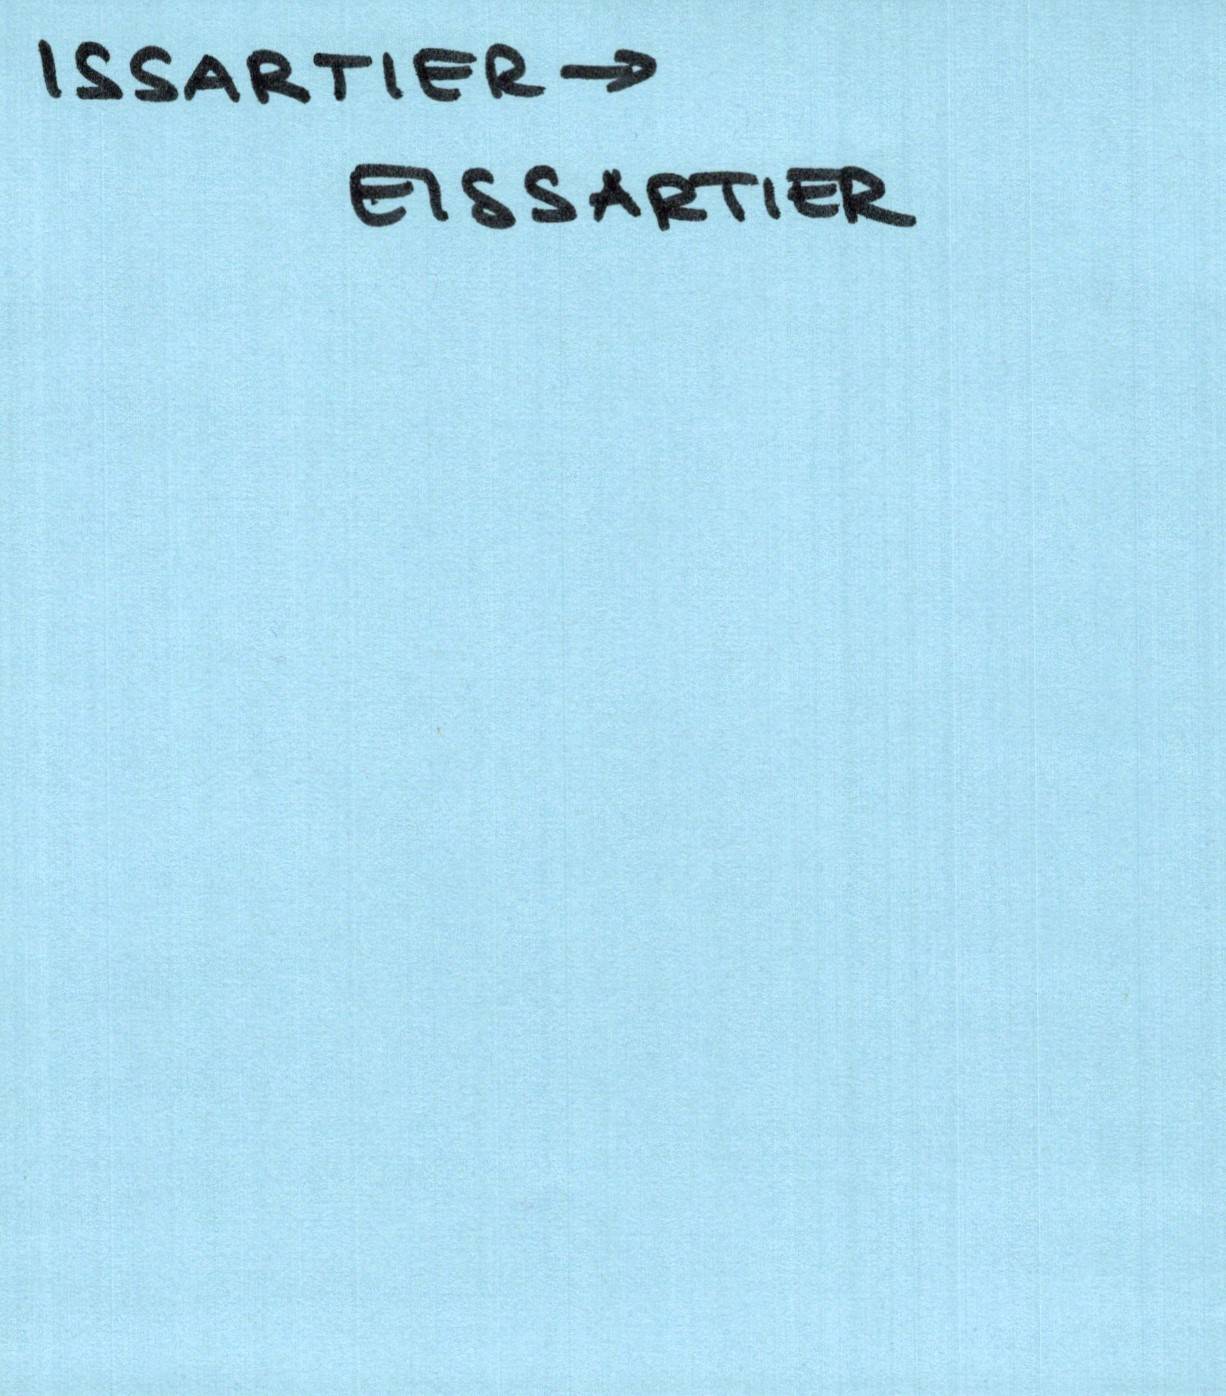 ISSARTIER →
EISSARTIER